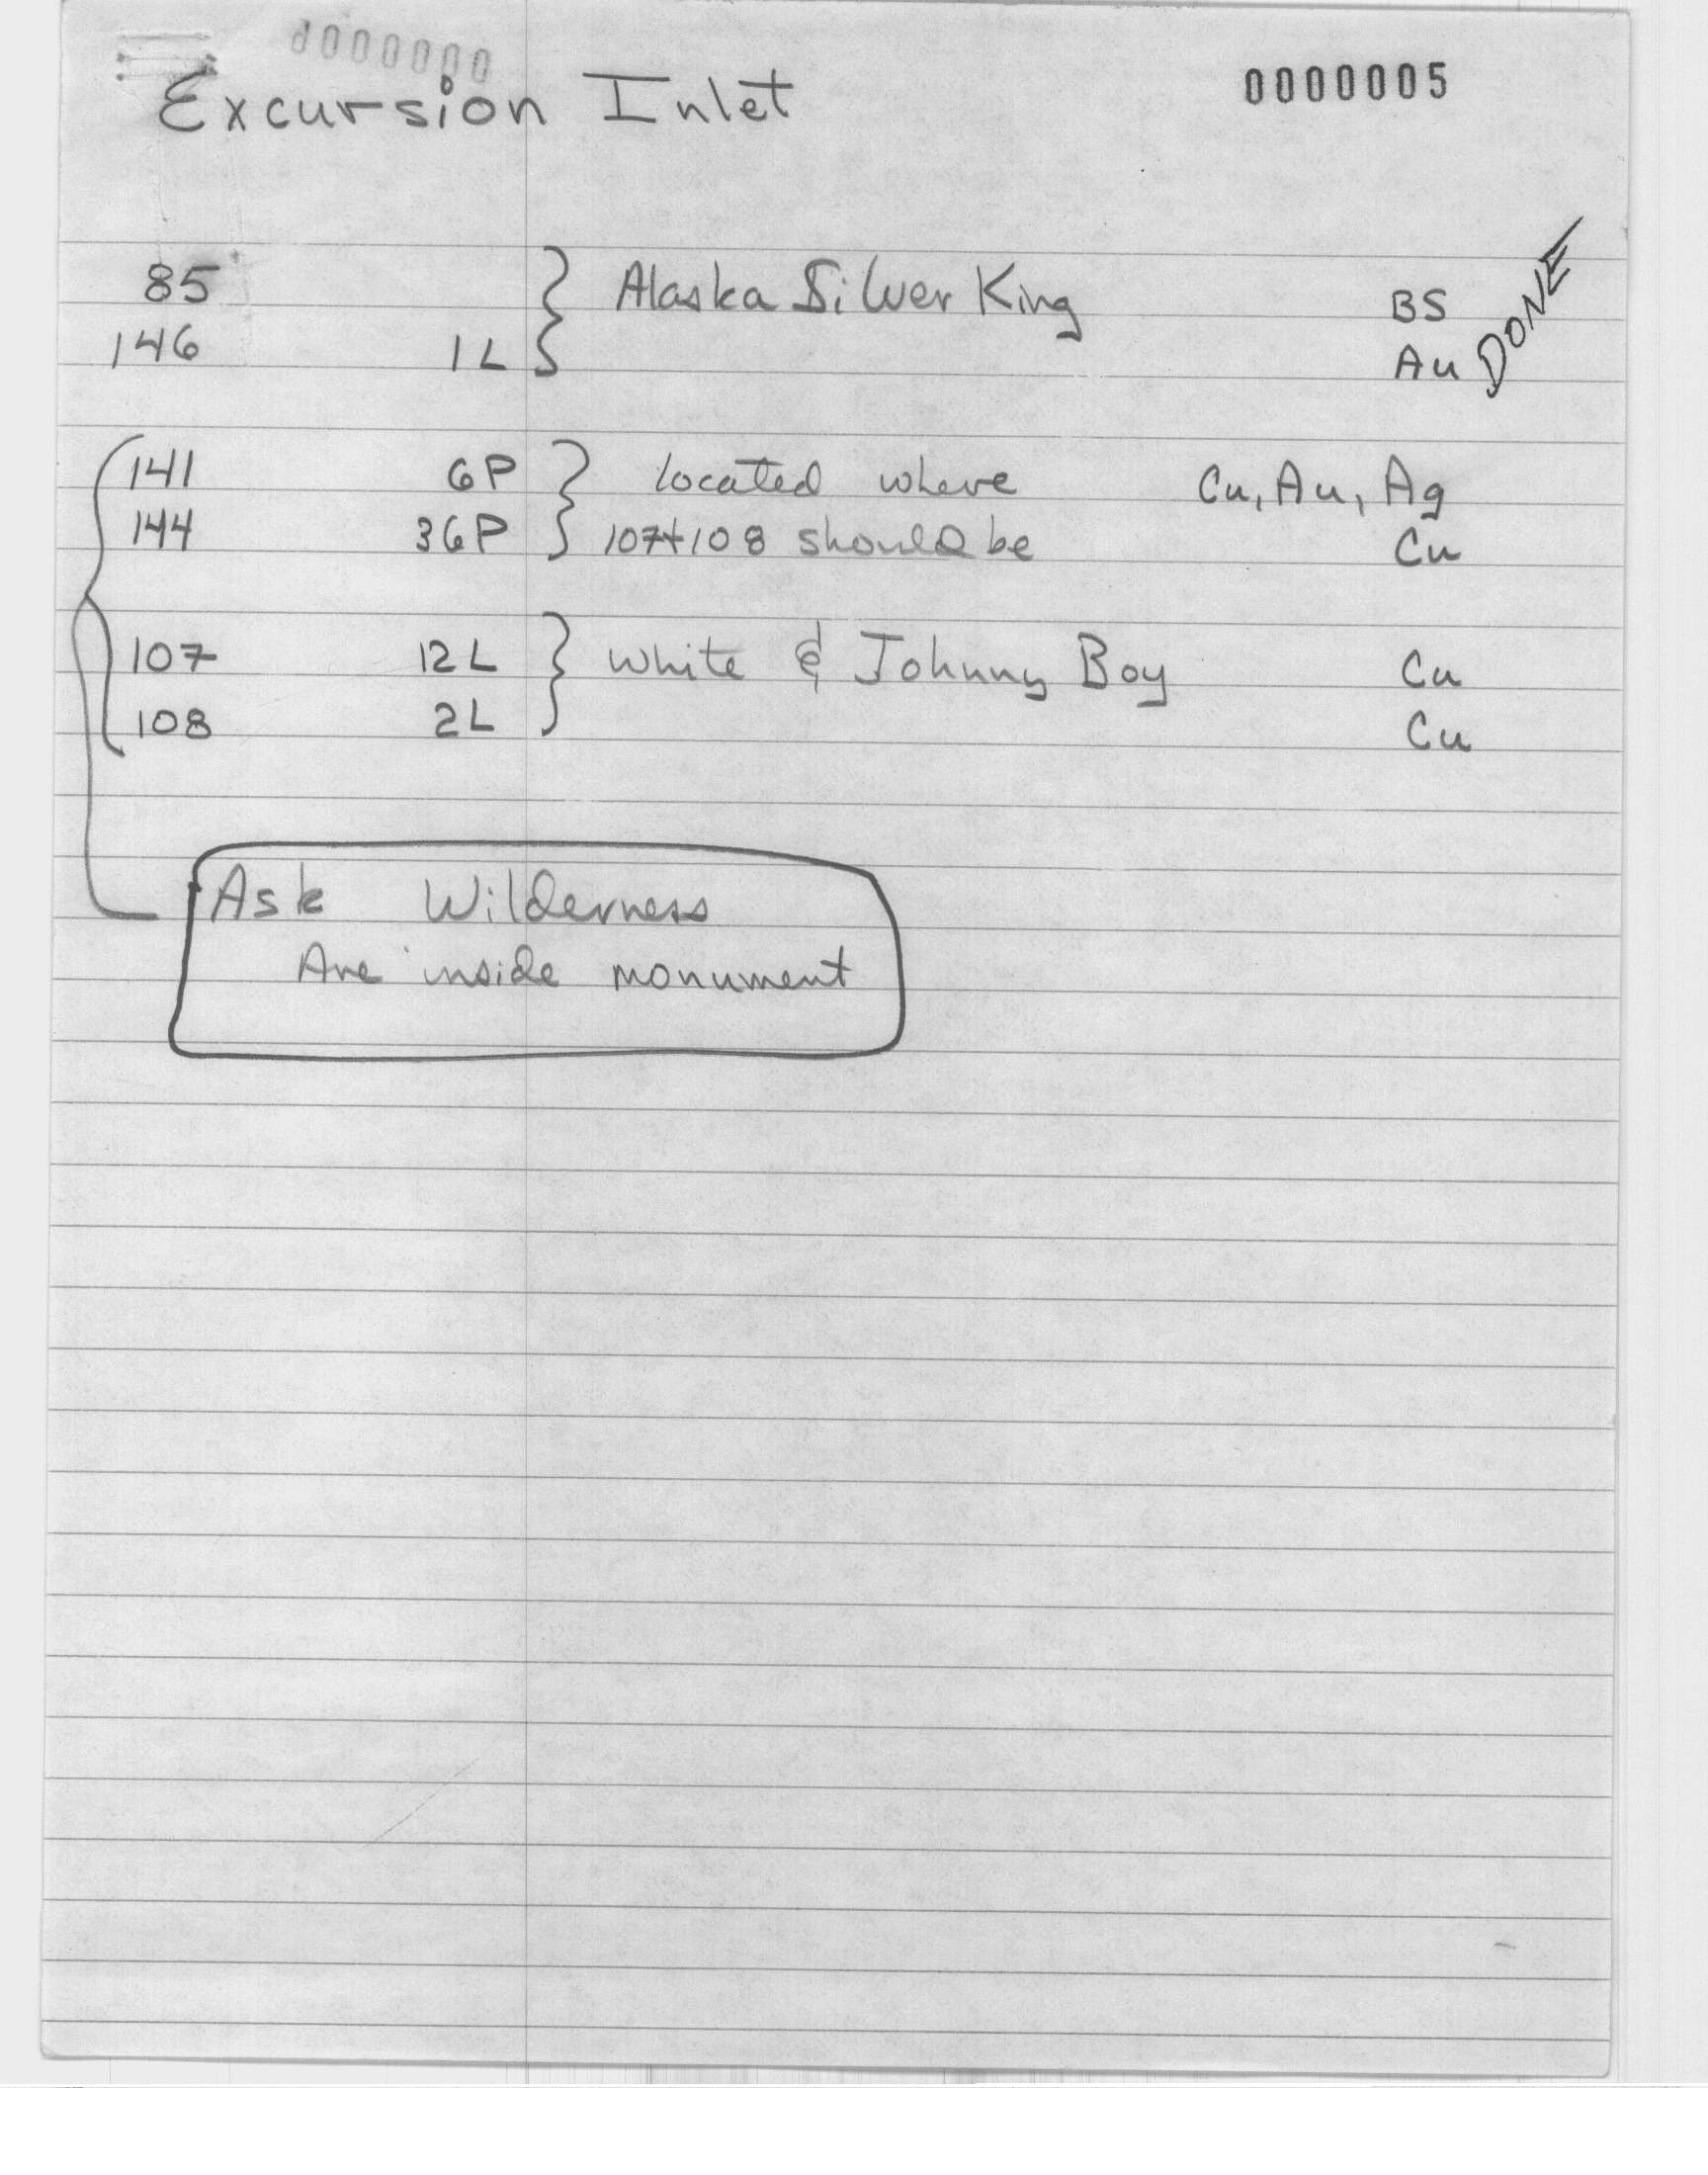 0000000
Excursion Inlet 0000005
85 } Alaska Silver King BS
146 1L } Au DONE
141 6P } located where Cu, Au, Ag
144 36P } 107+108 should be Cu
107 12L } White & Johnny Boy Cu
108 2L } Cu
Ask Wilderness
Are inside monument